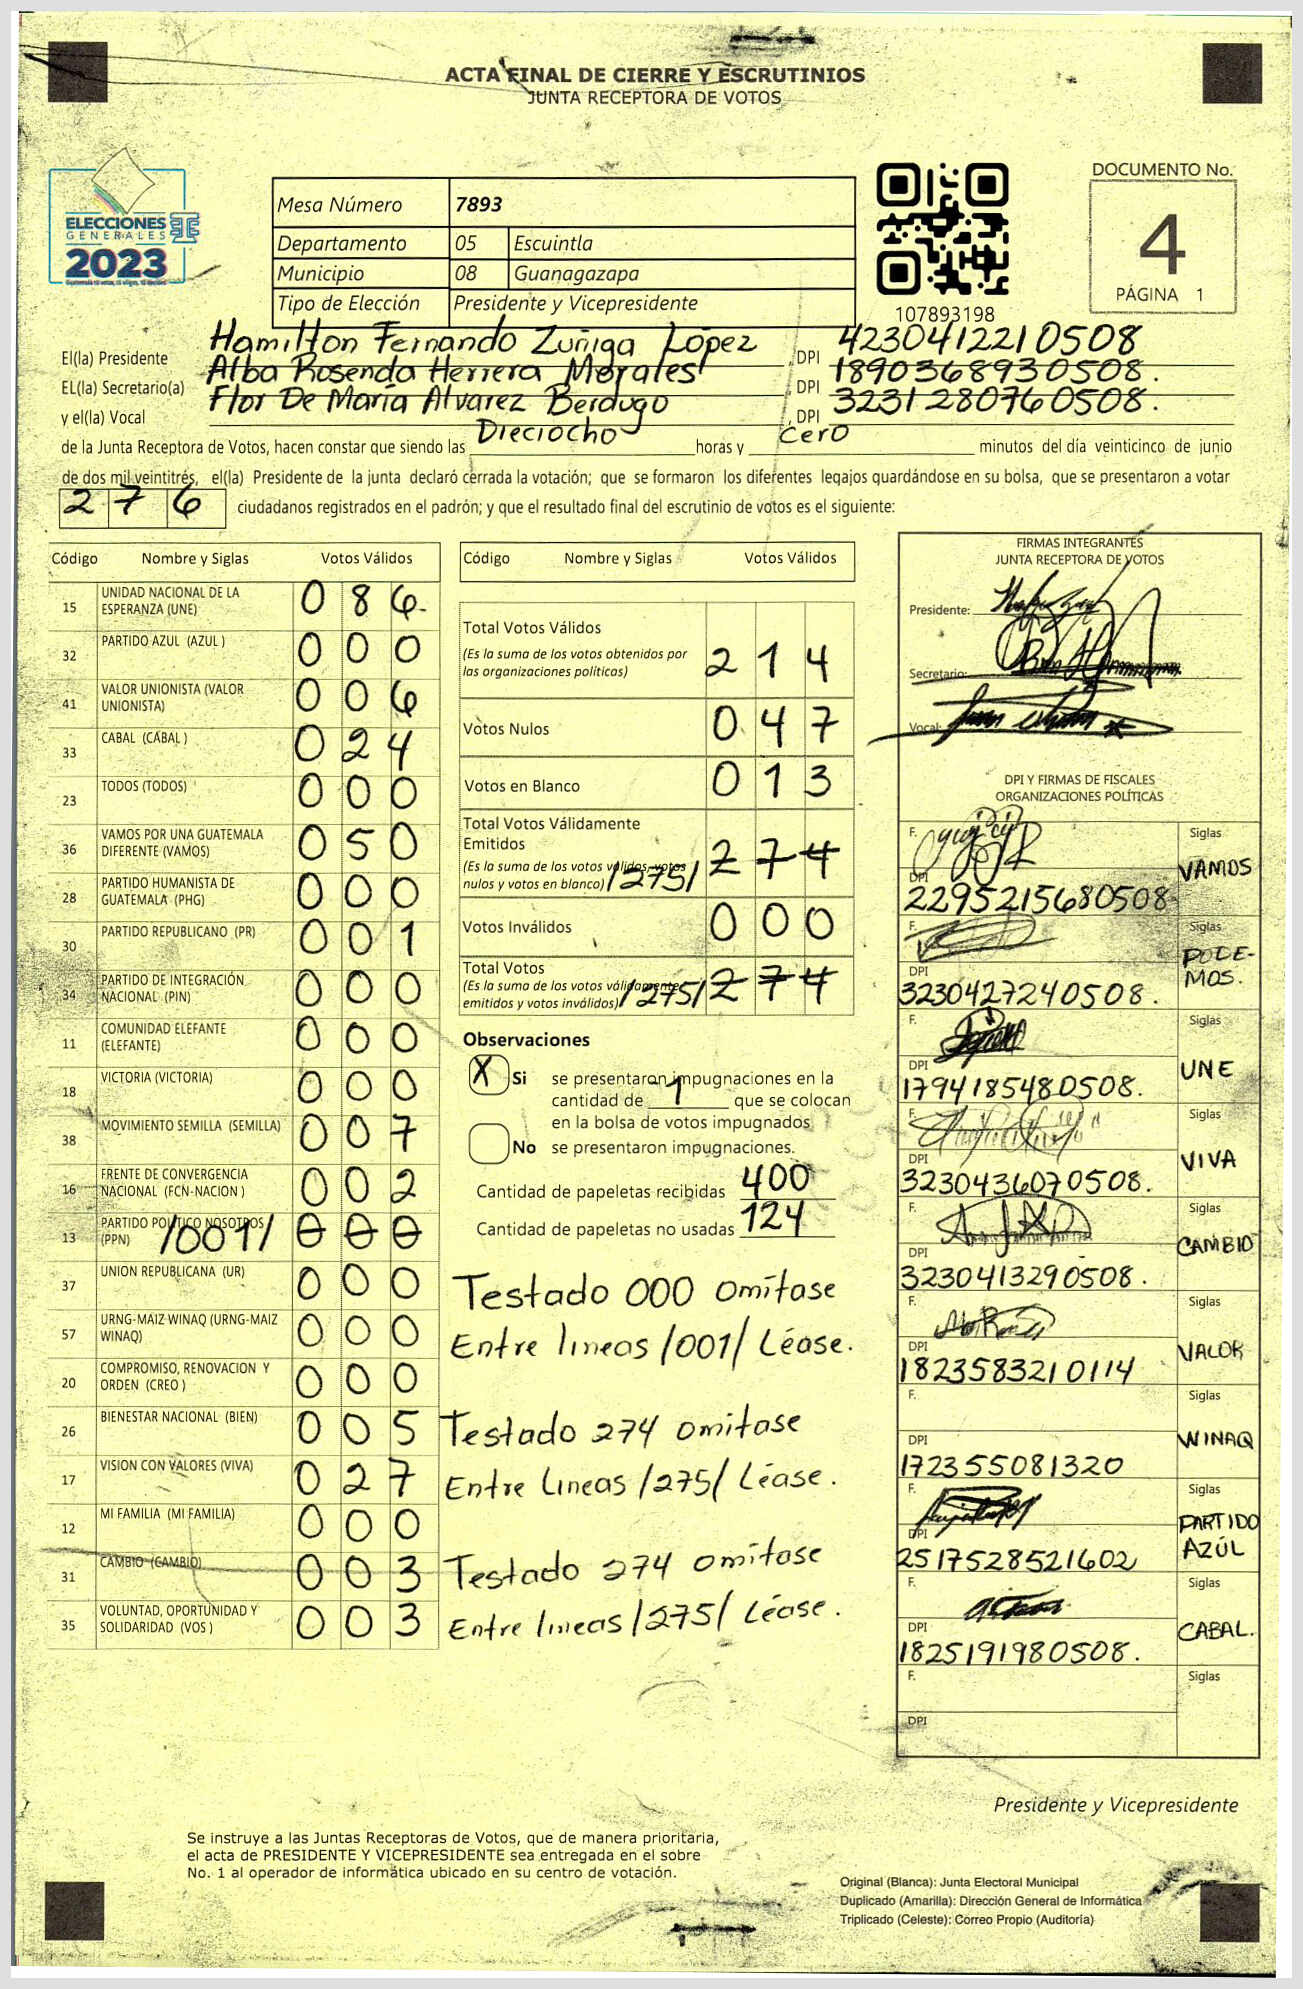 ACTA FINAL DE CIERRE Y ESCRUTINIOS
JUNTA RECEPTORA DE VOTOS
ELECCIONES
GENERALES
2023
Mesa Número 7893
Departamento 05 Escuintla
Municipio 08 Guanagazapa
Tipo de Elección Presidente y Vicepresidente
107893198
DOCUMENTO No.
4
PÁGINA 1
El(la) Presidente Hamilton Fernando Zuñiga López , DPI 4230412210508
EL(la) Secretario(a) Alba Rosenda Herrera Morales , DPI 1890368930508.
y el(la) Vocal Flor De María Alvarez Berdugo , DPI 3231280760508.
de la Junta Receptora de Votos, hacen constar que siendo las Dieciocho horas y cero minutos del día veinticinco de junio
de dos mil veintitrés, el(la) Presidente de la junta declaró cerrada la votación; que se formaron los diferentes legajos quardándose en su bolsa, que se presentaron a votar
2 7 6 ciudadanos registrados en el padrón; y que el resultado final del escrutinio de votos es el siguiente:
Código Nombre y Siglas Votos Válidos
15 UNIDAD NACIONAL DE LA ESPERANZA (UNE) 0 8 6
32 PARTIDO AZUL (AZUL ) 0 0 0
41 VALOR UNIONISTA (VALOR UNIONISTA) 0 0 6
33 CABAL (CABAL ) 0 2 4
23 TODOS (TODOS) 0 0 0
36 VAMOS POR UNA GUATEMALA DIFERENTE (VAMOS) 0 5 0
28 PARTIDO HUMANISTA DE GUATEMALA (PHG) 0 0 0
30 PARTIDO REPUBLICANO (PR) 0 0 1
34 PARTIDO DE INTEGRACIÓN NACIONAL (PIN) 0 0 0
11 COMUNIDAD ELEFANTE (ELEFANTE) 0 0 0
18 VICTORIA (VICTORIA) 0 0 0
38 MOVIMIENTO SEMILLA (SEMILLA) 0 0 7
16 FRENTE DE CONVERGENCIA NACIONAL (FCN-NACION ) 0 0 2
13 PARTIDO POLITICO NOSOTROS (PPN) /001/ 0 0 0
37 UNION REPUBLICANA (UR) 0 0 0
57 URNG-MAIZ-WINAQ (URNG-MAIZ WINAQ) 0 0 0
20 COMPROMISO, RENOVACION Y ORDEN (CREO ) 0 0 0
26 BIENESTAR NACIONAL (BIEN) 0 0 5
17 VISION CON VALORES (VIVA) 0 2 7
12 MI FAMILIA (MI FAMILIA) 0 0 0
31 CAMBIO (CAMBIO) 0 0 3
35 VOLUNTAD, OPORTUNIDAD Y SOLIDARIDAD (VOS ) 0 0 3
Código Nombre y Siglas Votos Válidos
Total Votos Válidos 2 1 4
(Es la suma de los votos obtenidos por
las organizaciones políticas)
Votos Nulos 0 4 7
Votos en Blanco 0 1 3
Total Votos Válidamente
Emitidos
(Es la suma de los votos válidos, votos
nulos y votos en blanco) /275/ 2 7 4
Votos Inválidos 0 0 0
Total Votos
(Es la suma de los votos válidamente
emitidos y votos inválidos) /275/ 2 7 4
Observaciones
X Si se presentaron impugnaciones en la
cantidad de 1 que se colocan
en la bolsa de votos impugnados
No se presentaron impugnaciones.
Cantidad de papeletas recibidas 400
Cantidad de papeletas no usadas 124
Testado 000 omítase
Entre lineas /001/ Léase.
Testado 274 omítase
Entre Lineas /275/ Léase.
Testado 274 omítase
Entre lineas /275/ Léase.
FIRMAS INTEGRANTES
JUNTA RECEPTORA DE VOTOS
Presidente:
Secretario:
Vocal:
DPI Y FIRMAS DE FISCALES
ORGANIZACIONES POLÍTICAS
F. Siglas
VAMOS
DPI 2295215680508
F. Siglas
PODE-
MOS.
DPI 3230427240508.
F. Siglas
UNE
DPI 1794185480508.
F. Siglas
VIVA
DPI 3230436070508.
F. Siglas
CAMBIO
DPI 3230413290508.
F. Siglas
VALOR
DPI 1823583210114
F. Siglas
WINAQ
DPI 172355081320
F. Siglas
PARTIDO
AZÚL
DPI 2517528521602
F. Siglas
CABAL.
DPI 1825191980508.
F. Siglas
DPI
Presidente y Vicepresidente
Se instruye a las Juntas Receptoras de Votos, que de manera prioritaria,
el acta de PRESIDENTE Y VICEPRESIDENTE sea entregada en el sobre
No. 1 al operador de informática ubicado en su centro de votación.
Original (Blanca): Junta Electoral Municipal
Duplicado (Amarilla): Dirección General de Informática
Triplicado (Celeste): Correo Propio (Auditoría)